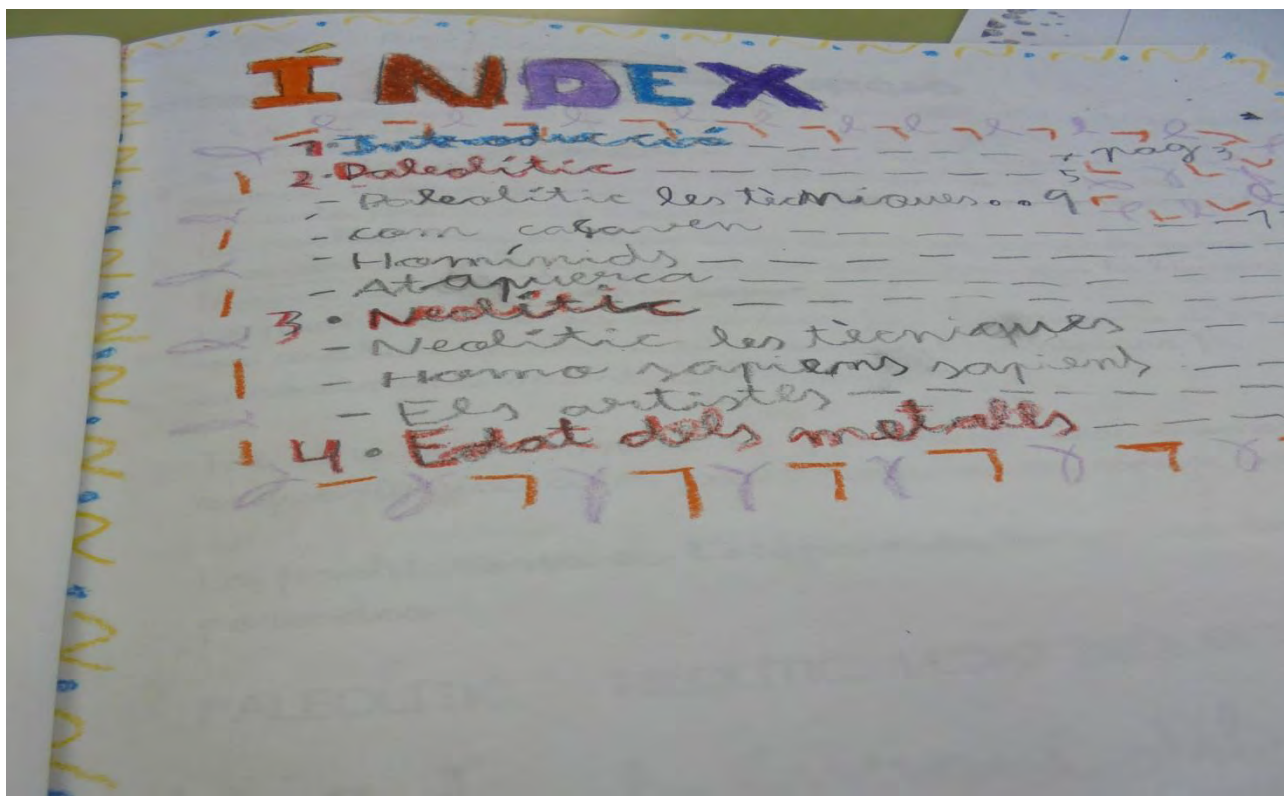 ÍNDEX
1. Introducció pàg 3
2. Paleolític 5
- Paleolític les tècniques.. 9
- com caçaven 7
- Homínids
- Atapuerca
3. Neolític
- Neolític les tècniques
- Homo sapiens sapiens
- Els artistes
4. Edat dels metalls